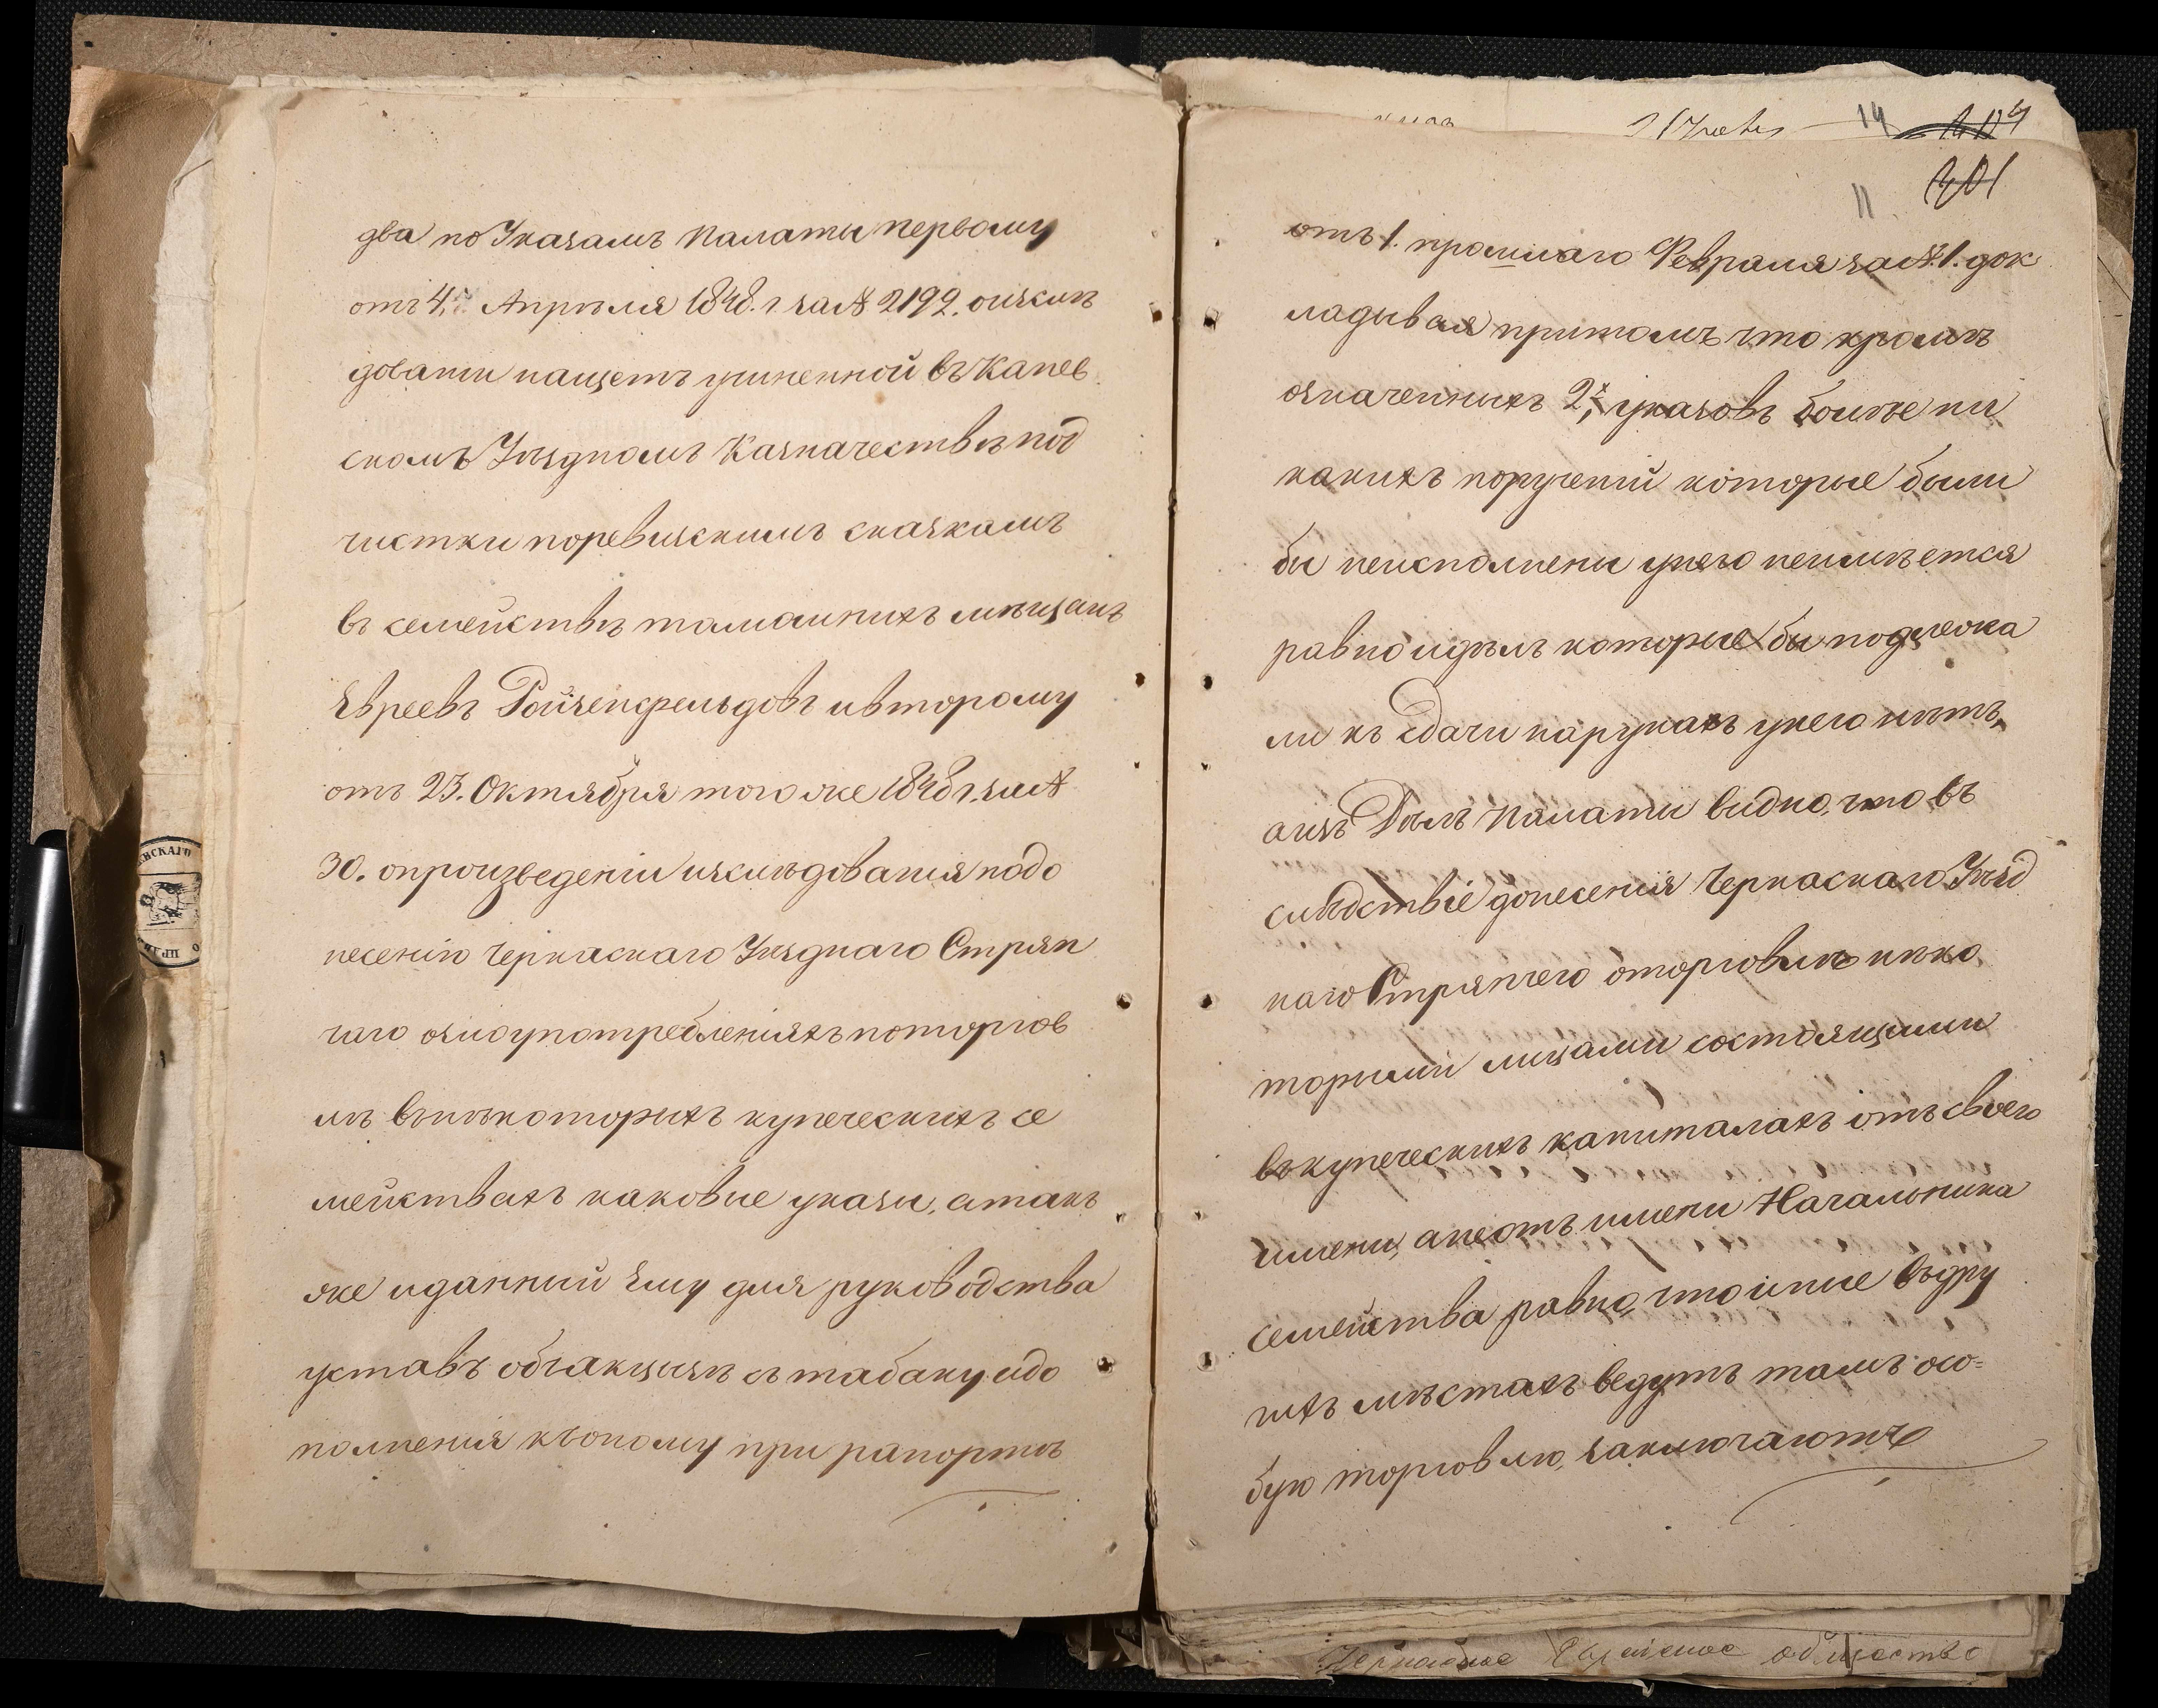 два по Указамъ Палаты первому
отъ 4. Апрѣля 1848. г. за № 2192. о изслѣ
дованіи нащетъ учиненной въ Канев
скомъ Уѣздномъ Казначействѣ под
чистки поревизскимъ сказкамъ
въ семействѣ тамошнихъ мѣщанъ
Евреевъ Ройзенфельдовъ ивторому
отъ 23. Октября того же 1848 г. за №
30. опроизведеніи изслѣдованія подо
несенію Черкаскаго Уѣзднаго Стряп
чаго озлоупотребленіяхъ поторгов
лѣ внѣкоторыхъ купеческихъ се
мействахъ каковые указы, атакъ
же иданный Ему для руководства
уставъ объакцизѣ съ табаку идо
полненія къоному при рапортѣ
11
отъ 1. прошлаго Февраля за № 1. док
ладывая притомъ что кромѣ
означенныхъ 2х, указовъ более ни
какихъ порученій которые были
бы неисполнены унего неимѣется
равно идѣлъ которые бы подлежа
ли къ Сдачи нарукахъ унего нѣтъ,
аизъ Дѣлъ Палаты видно, что въ
слѣдствіе донесенія Черкаскаго Уѣзд
наго Стряпчего оторговлѣ нѣко
торыми лицами состоящими
въкупеческихъ капиталахъ отъ своего
имени, анеотъ имени Начальника
семейства равно, что иные въдру
гихъ мѣстахъ ведутъ тамъ осо=
бую торговлю, заключаютъ
14
Черкаское Еврейское общество